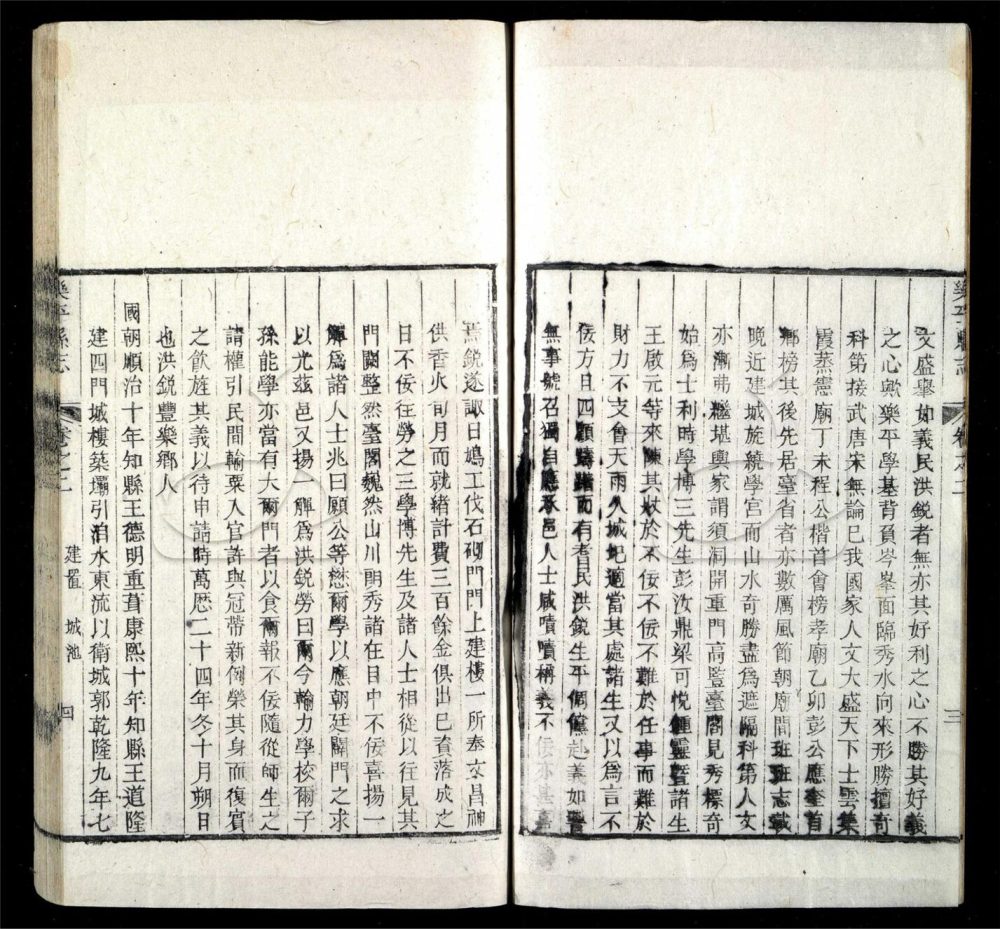 樂平縣志
卷之二
三
文盛舉如義民洪銳者無亦其好利之心不勝其好義
之心歟樂平學基背負岑峯面臨秀水向來形勝擅奇
科第接武唐宋無論已我國家人文大盛天下士雲集
霞蒸憲廟丁未程公楷首會榜孝廟乙卯彭公應奎首
鄉榜其後先居臺省者亦數厲風節朝廟間班班志載
晚近建城旋繞學宮而山水奇勝盡為遮隔科第人文
亦漸弗繼堪輿家謂須洞開重門高豎臺閣見秀標奇
始為士利時學博三先生彭汝鼎梁可悅鍾靈暨諸生
王啟元等來陳其狀於不佞不佞不難於任事而難於
財力不支會天雨久城圮適當其處諸生又以為言不
佞方且四顧躊躇而有耆民洪銳生平倜儻赴義如響
無事號召獨自應承邑人士咸嘖嘖稱義不佞亦甚喜
銳遂諏日鳩工伐石砌門門上建樓一所奉文昌神
供香火旬月而就緒計費三百餘金俱出已資落成之
日不佞往勞之三學博先生及諸人士相從以往見其
門闢整然臺閣巍然山川明秀諸在目中不佞喜揚一
觶為諸人士兆曰願公等懋爾學以應朝廷闢門之求
以光茲邑又揚一觶為洪銳勞曰爾今輸力學校爾子
孫能學亦當有大爾門者以食爾報不佞隨從師生之
請權引民間輸粟入官許與冠帶新例榮其身而復賓
之飲旌其義以待申請時萬厯二十四年冬十月朔日
也洪銳豐樂鄉人
國朝順治十年知縣王德明重葺康熙十年知縣王道隆
建四門城樓築壩引泊水東流以衛城郭乾隆九年七
樂平縣志
卷之二
建置 城池
四